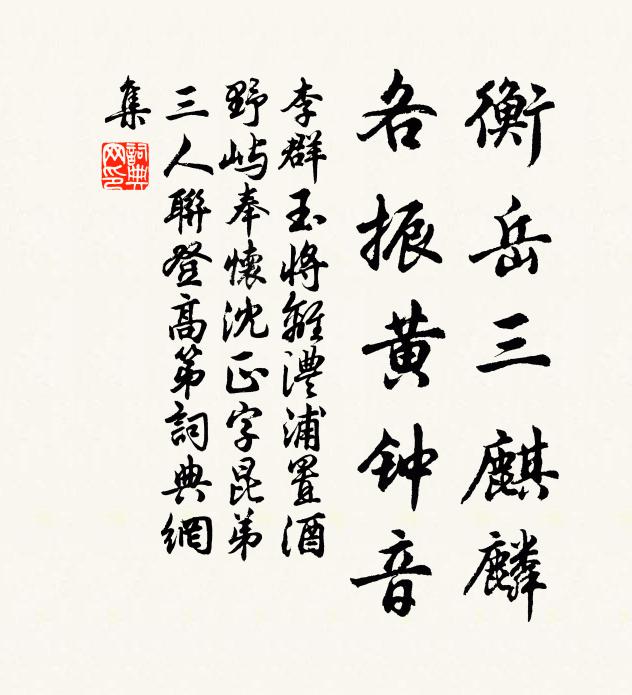 衡岳三麒麟
各振黄钟音
李群玉将離澧浦置酒
野屿奉懷沈正字昆弟
三人聯登高第詞典網
集
詞典
网印